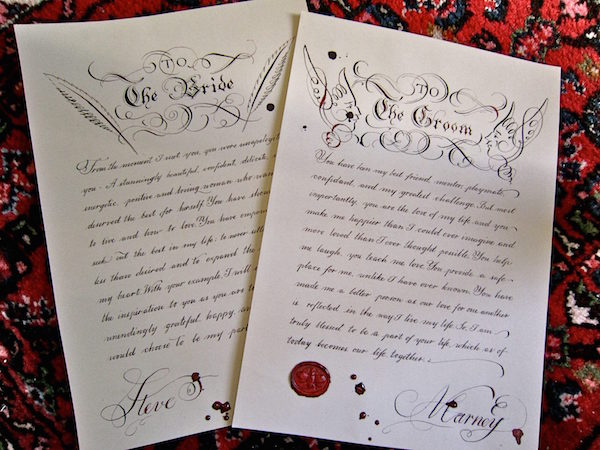 To
The Bride
From the moment I met you, you were
you - A stunningly beautiful, confident, delicate,
energetic, positive and loving woman who
deserved the best for herself. You have
to live and how to love. You have
seek out the best in my life; to never
less than desired and to expand the
my heart. With your example, I will
the inspiration to you as you are
unendingly grateful, happy,
would choose to be my
Steve
To
The Groom
You have been my best friend, mentor, playmate,
confidant, and my greatest challenge. But most
importantly, you are the love of my life and you
make me happier than I could ever imagine and
more loved than I ever thought possible. You help
me laugh, you teach me love. You provide a safe
place for me, unlike I have ever known. You have
made me a better person as our love for one another
is reflected in the way I live my life. So, I am
truly blessed to be a part of your life, which as of
today becomes our life together.
Marney